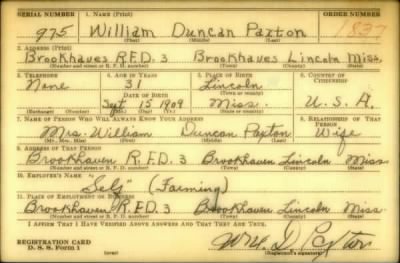 SERIAL NUMBER 1. NAME (Print) ORDER NUMBER
975 William Duncan Paxton 1837
(First) (Middle) (Last)
2. ADDRESS (Print)
Brookhaven R.F.D. 3 Brookhaven Lincoln Miss.
(Number and street or R. F. D. number) (Town) (County) (State)
3. TELEPHONE 4. AGE IN YEARS 5. PLACE OF BIRTH 6. COUNTRY OF CITIZENSHIP
None 31 Lincoln
DATE OF BIRTH (Town or county)
Sept 15 1909 Miss. U. S. A.
(Exchange) (Number) (Mo.) (Day) (Yr.) (State or country)
7. NAME OF PERSON WHO WILL ALWAYS KNOW YOUR ADDRESS 8. RELATIONSHIP OF THAT PERSON
Mrs. William Duncan Paxton Wife
(Mr., Mrs., Miss) (First) (Middle) (Last)
9. ADDRESS OF THAT PERSON
Brookhaven R.F.D. 3 Brookhaven Lincoln Miss
(Number and street or R. F. D. number) (Town) (County) (State)
10. EMPLOYER'S NAME
"Self" (Farming)
11. PLACE OF EMPLOYMENT OR BUSINESS
Brookhaven R.F.D. 3 Brookhaven Lincoln Miss
(Number and street or R. F. D. number) (Town) (County) (State)
I AFFIRM THAT I HAVE VERIFIED ABOVE ANSWERS AND THAT THEY ARE TRUE.
REGISTRATION CARD
D. S. S. Form 1
Wm. D. Paxton
(Registrant's signature)